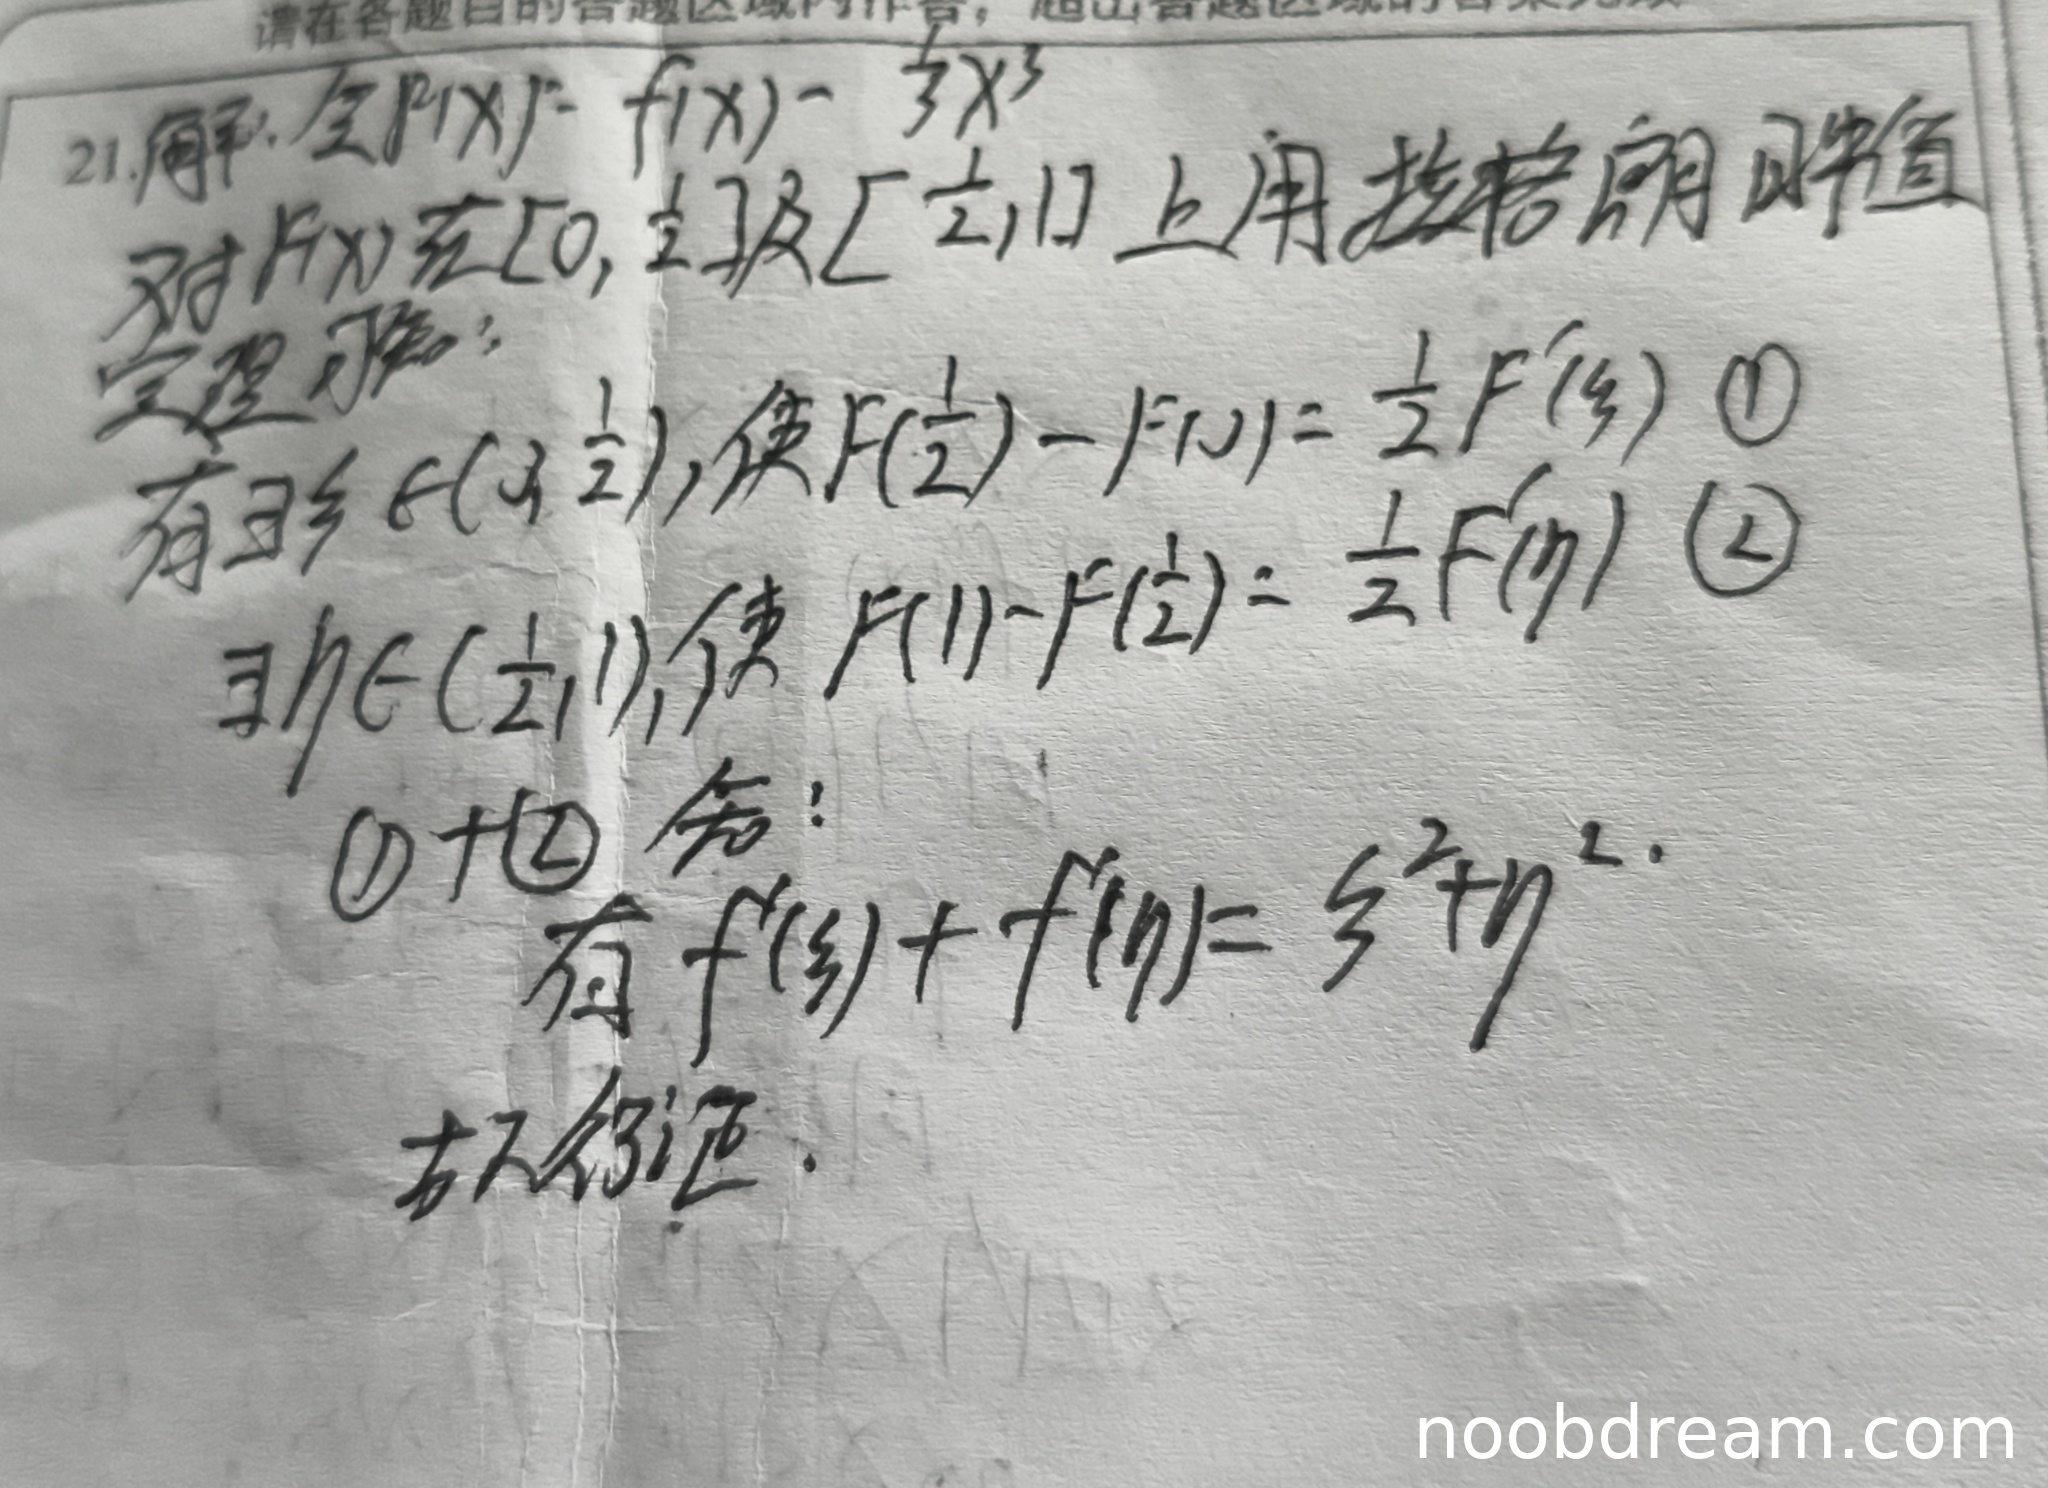 请在各题目的答题区域内作答，超出答题区域的答案无效
21.解：令F(x)= f(x)- 1/3 x³
对F(x)在[0, 1/2]及[1/2, 1]上用拉格朗日中值
定理可知：
有∃ξ∈(0, 1/2), 使F(1/2)-F(0)= 1/2 F'(ξ) ①
∃η∈(1/2, 1), 使 F(1)-F(1/2)= 1/2 F'(η) ②
①+② 知：
有 f'(ξ)+f'(η)= ξ²+η².
故得证.
noobdream.com